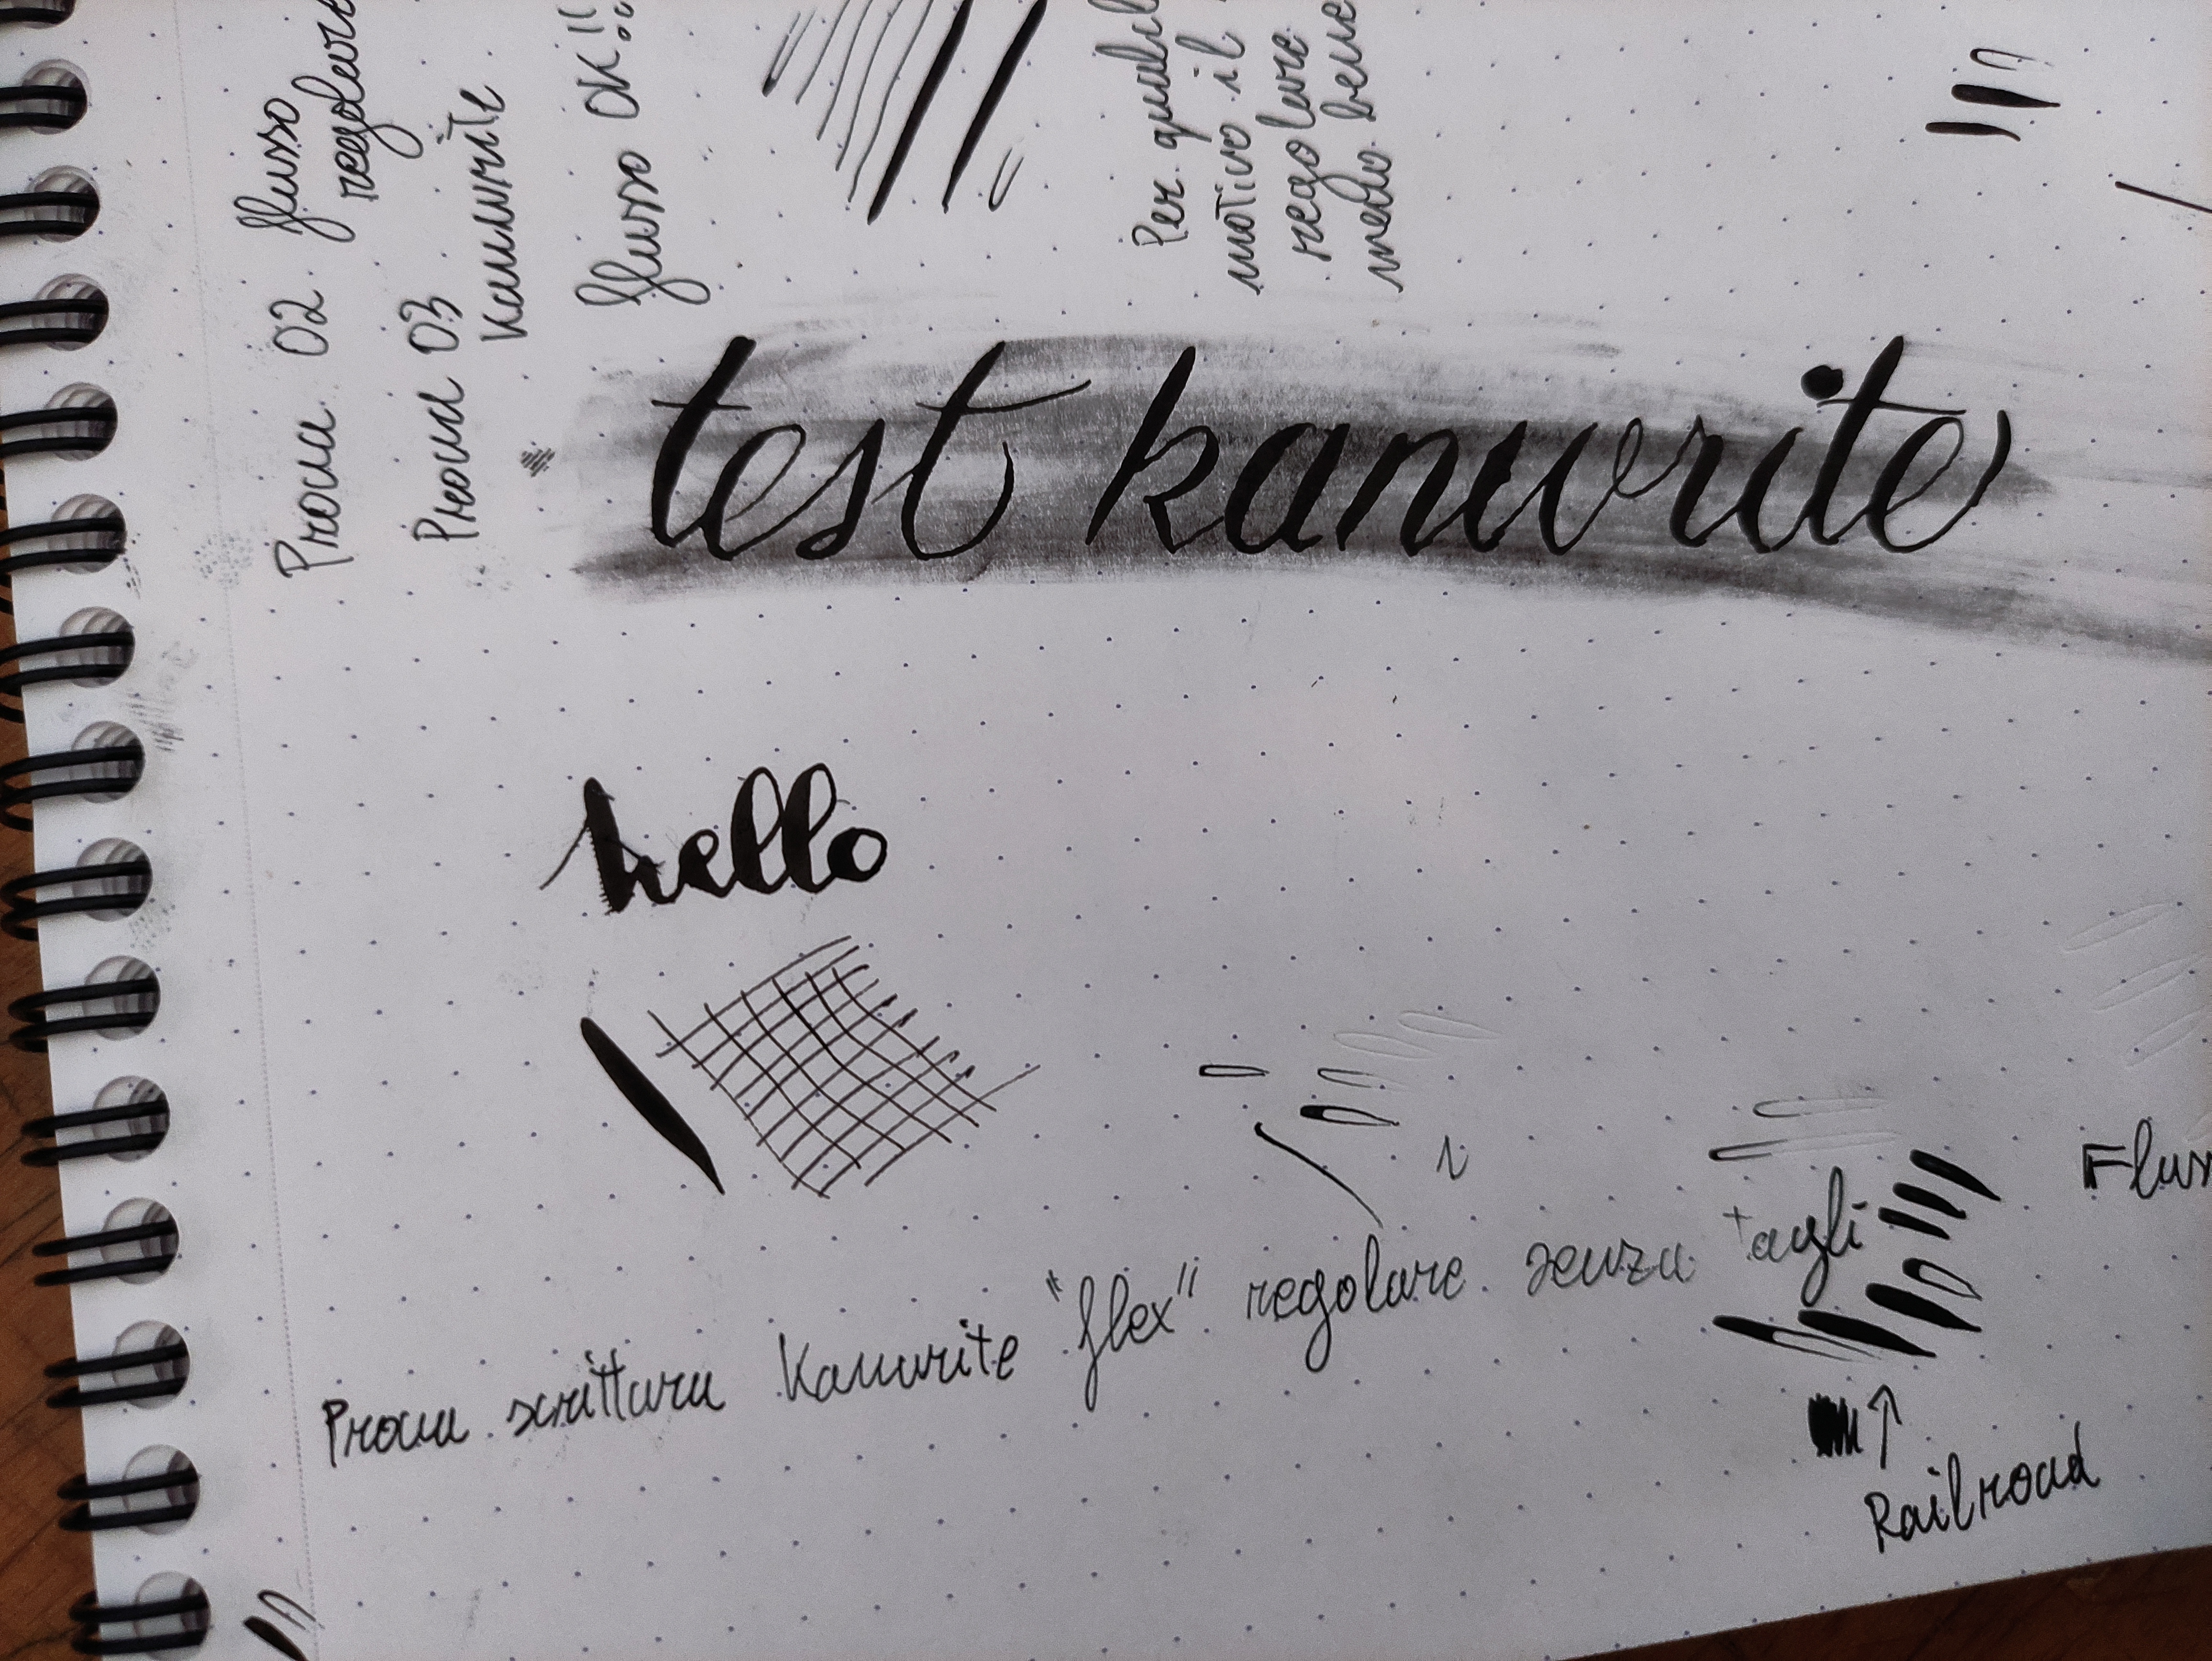 Prova 02 flusso
regolare
Prova 03
Kanwrite
flusso OK!!
Per qualc
motivo il
regolare
meno bene
test kanwrite
hello
Flus
Prova scrittura Kanwrite "flex" regolare senza tagli
Railroad